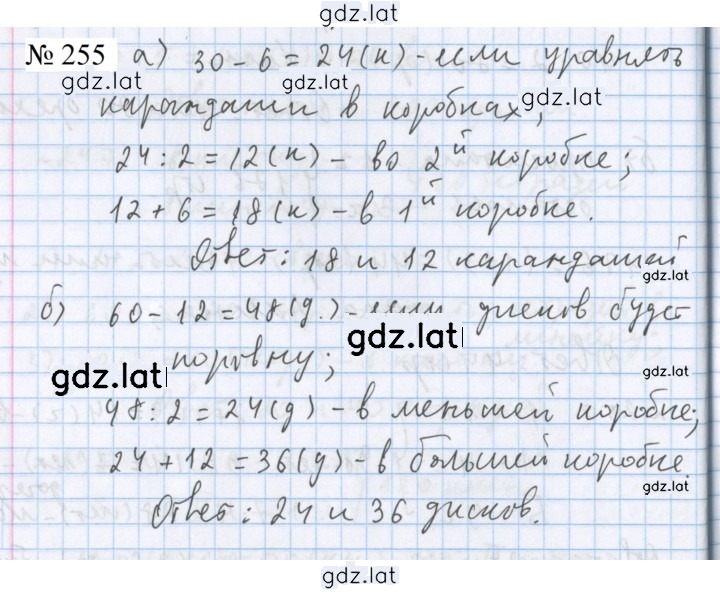 gdz.lat
№ 255 а) 30 - 6 = 24 (к) - если уравнять
gdz.lat gdz.lat
карандаши в коробках,
24 : 2 = 12 (к) - во 2й коробке;
12 + 6 = 18 (к) - в 1й коробке.
Ответ: 18 и 12 карандашей
gdz.lat
б) 60 - 12 = 48 (д.) - если дисков будет
gdz.lat
поровну;
gdz.lat
gdz.lat
48 : 2 = 24 (д) - в меньшей коробке;
24 + 12 = 36 (д) - в большей коробке.
gdz.lat
Ответ: 24 и 36 дисков.
gdz.lat